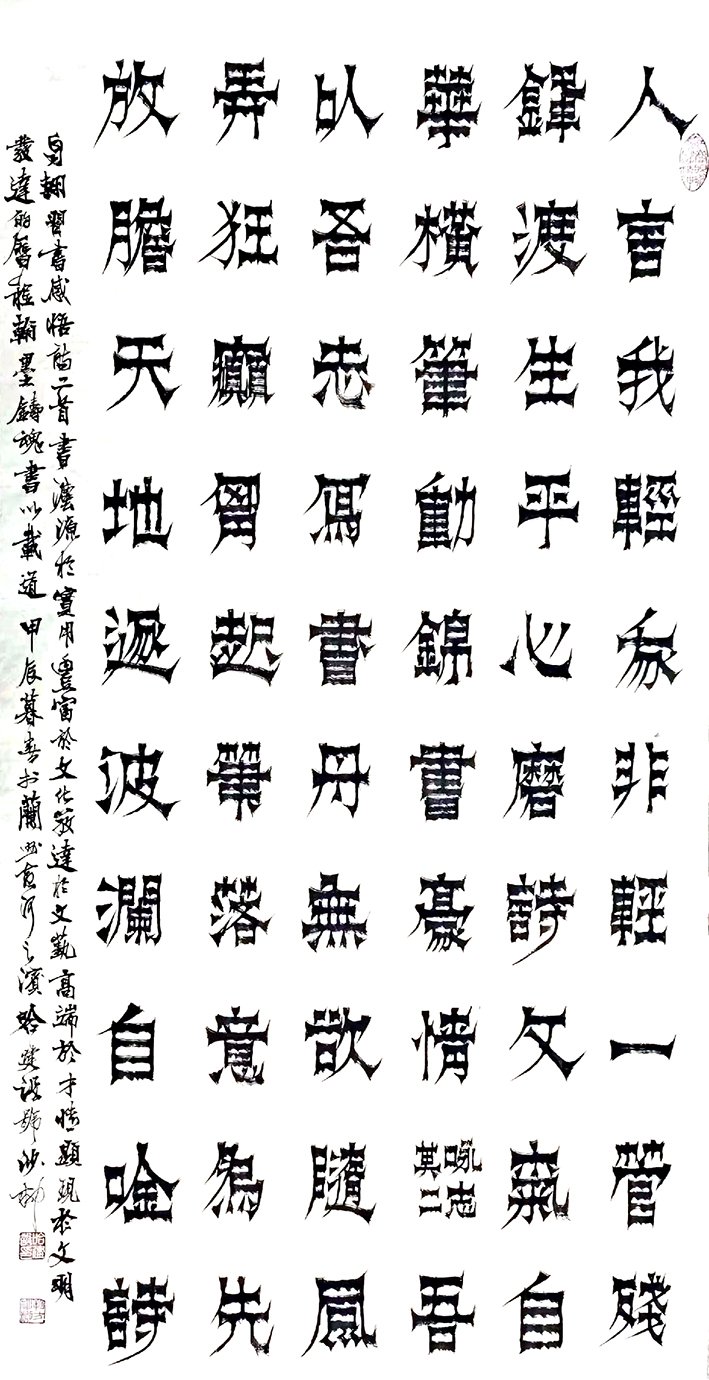 人言我輕我非輕一管殘
鋒渡生平心磨詩文氣自
華橫筆動錦書豪情詠志其二吾
以吾志寫書丹無欲隨風
弄狂癲胃起筆落意為先
放膽天地逐波瀾自吟詩
自翺習書感悟詩二首書法源於實用豐富於文化發達於文藝高端於才情顯現於文明
發達的曆程翰墨鑄魂書以載道甲辰暮春於蘭州黃河之濱哈建設號沙柳